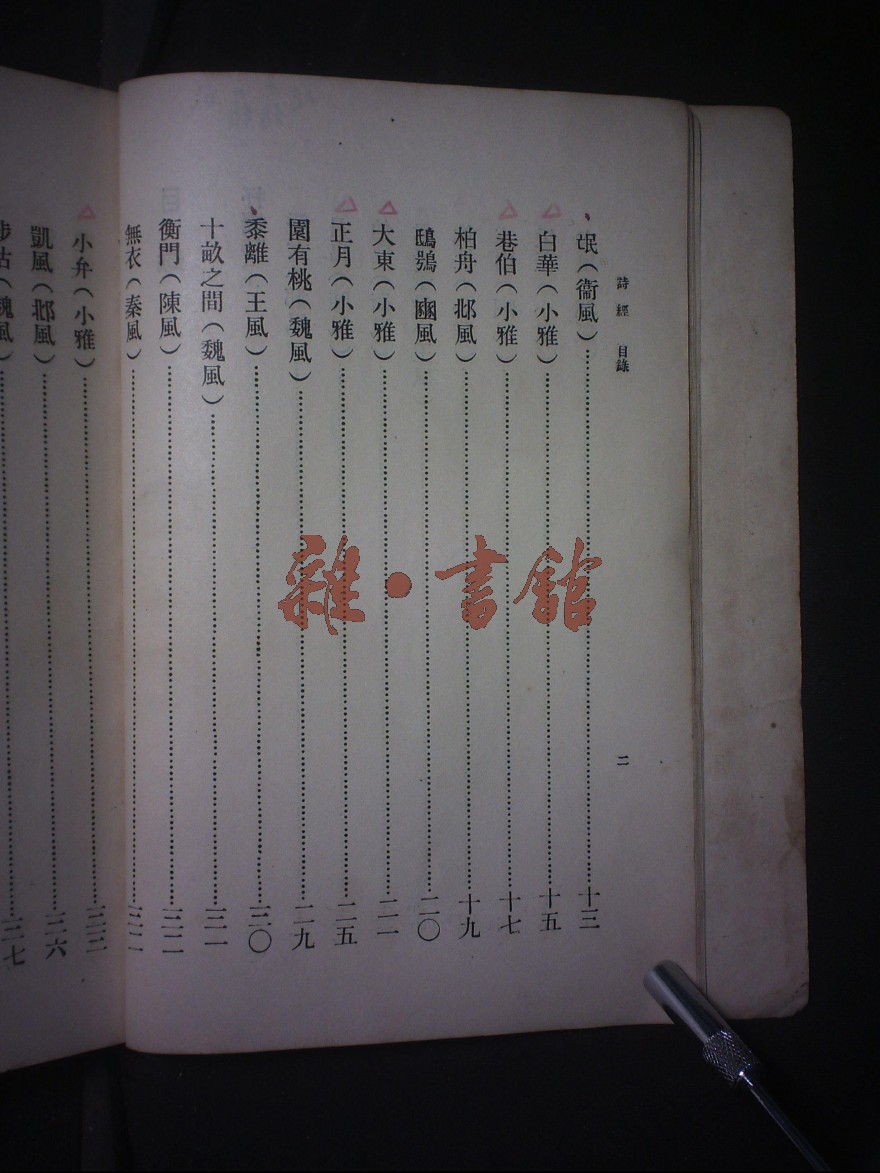 詩經 目錄 二
氓(衞風)………十三
白華(小雅)………十五
巷伯(小雅)………十七
柏舟(邶風)………十九
鴟鴞(豳風)………二〇
大東(小雅)………二一
正月(小雅)………二五
園有桃(魏風)………二九
黍離(王風)………三〇
十畝之間(魏風)………三一
衡門(陳風)………三二
無衣(秦風)………三二
小弁(小雅)………三三
凱風(邶風)………三六
陟岵(魏風)………三七
雜·書館